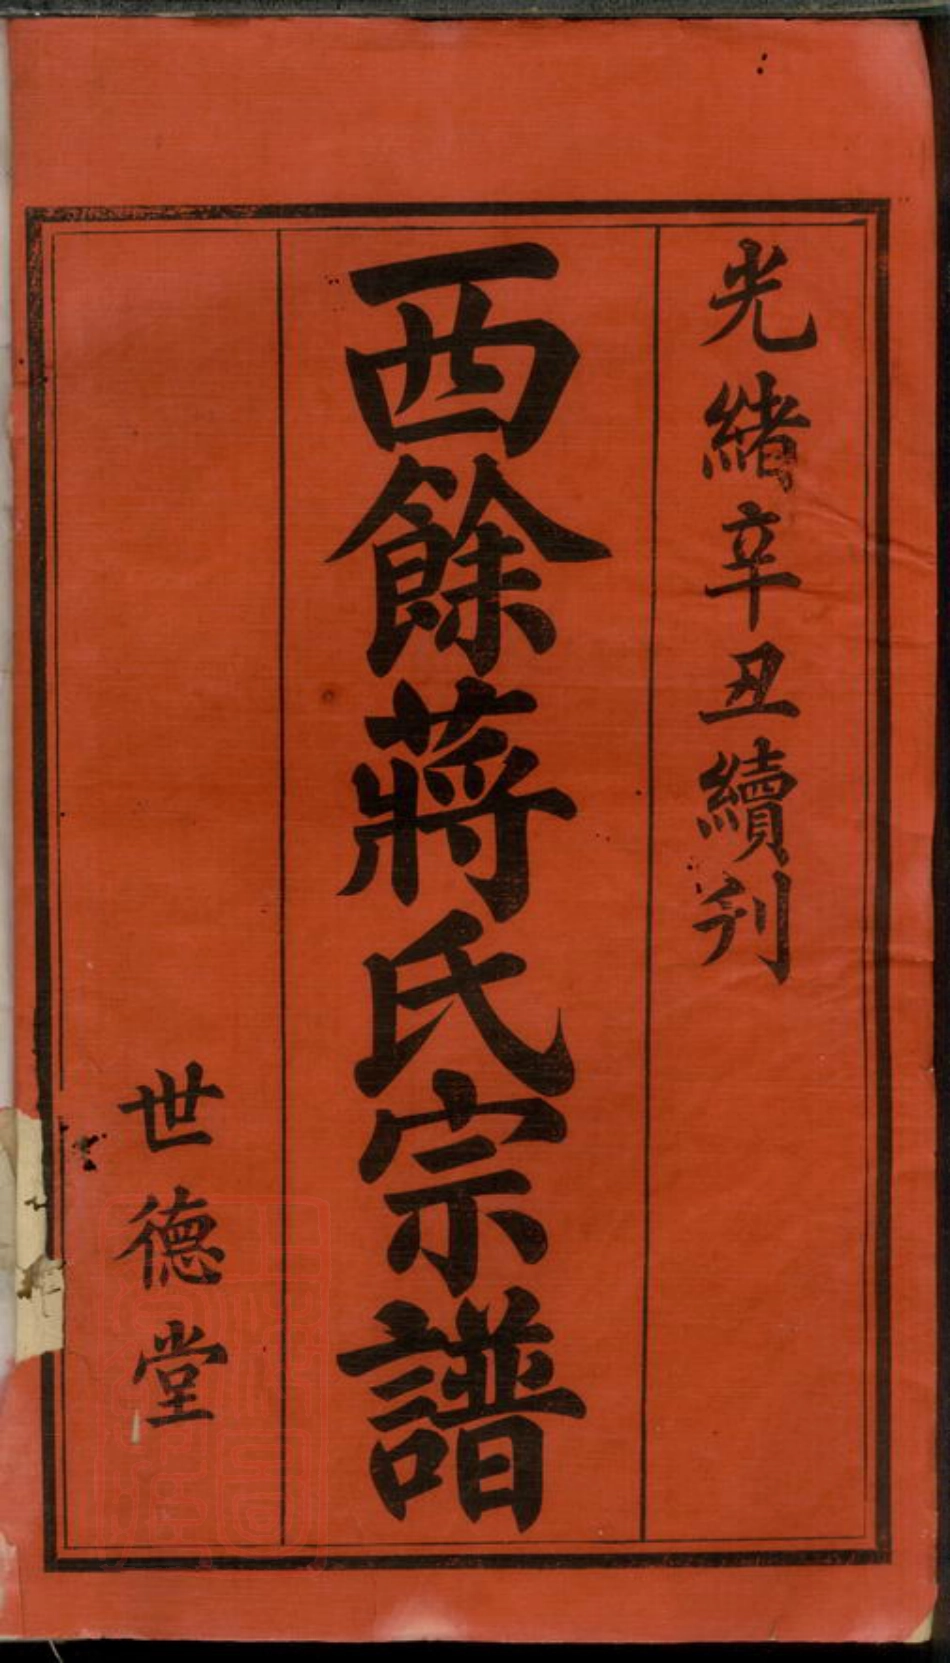 光緒辛丑續刋
西餘蔣氏宗譜
世德堂